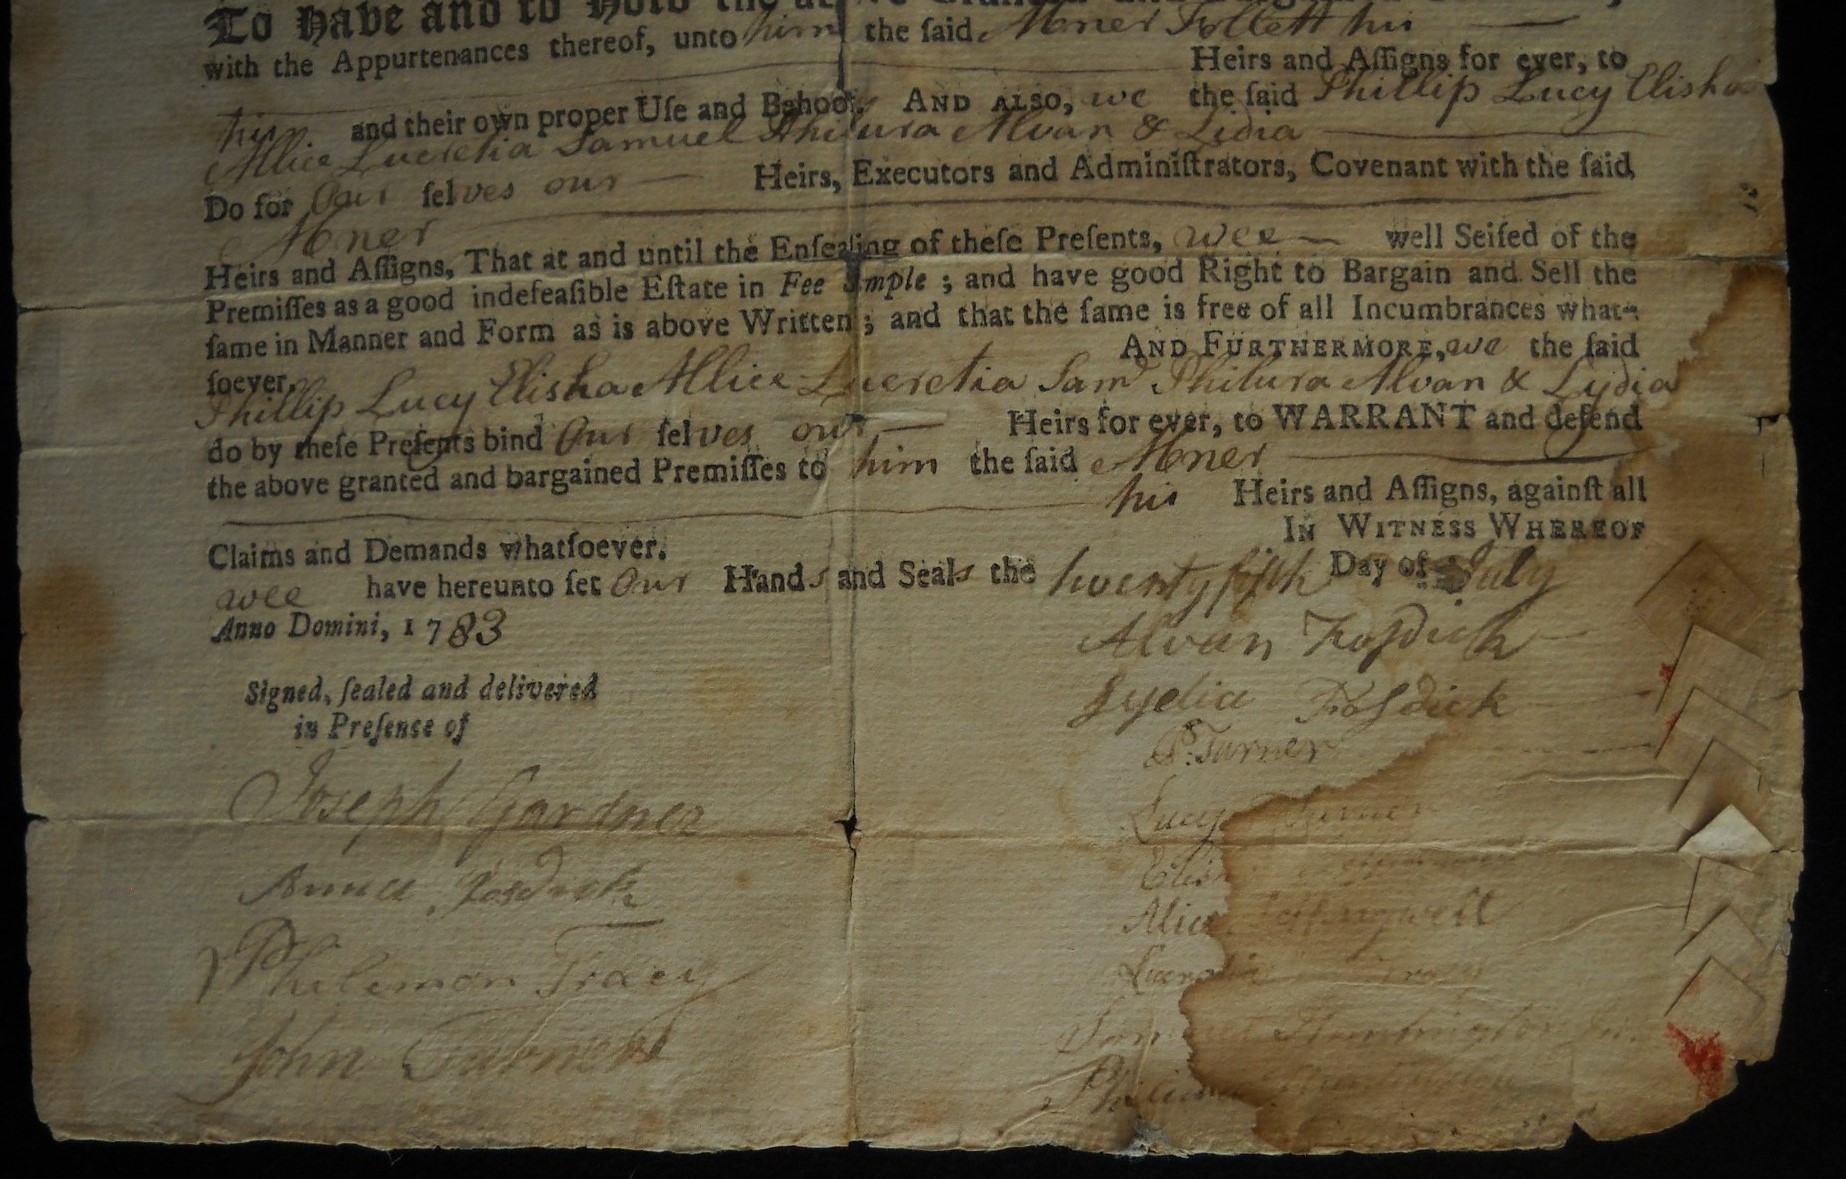 To Have and to Hold the
with the Appurtenances thereof, unto him the ſaid Abner Follett his
Heirs and Aſſigns for ever, to
him and their own proper Uſe and Behoof. AND ALSO, we the ſaid Phillip Lucy Elisha
Allice Lucretia Samuel Philura Alvan & Lidia
Do for Our ſelves our Heirs, Executors and Adminiſtrators, Covenant with the ſaid
Abner
Heirs and Aſſigns, That at and until the Enſealing of theſe Preſents, wee well Seiſed of the
Premiſſes as a good indefeaſible Eſtate in Fee Simple ; and have good Right to Bargain and Sell the
ſame in Manner and Form as is above Written ; and that the ſame is free of all Incumbrances what-
ſoever. AND FURTHERMORE, we the ſaid
Phillip Lucy Elisha Allice Lucretia Saml Philura Alvan & Lydia
do by theſe Preſents bind Our ſelves our Heirs for ever, to WARRANT and defend
the above granted and bargained Premiſſes to him the ſaid Abner
his Heirs and Aſſigns, againſt all
Claims and Demands whatſoever. IN WITNESS WHEREOF
wee have hereunto ſet Our Hands and Seals the twenty fifth Day of July
Anno Domini, 1783
Alvan Fosdick
Signed, ſealed and delivered
in Preſence of
Lydia Fosdick
P. Turner
Joseph Gardner
Lucy Turner
Anna Fosdick
Alice Leffingwell
Philemon Tracy
Lucretia Tracy
John Turner
Huntington